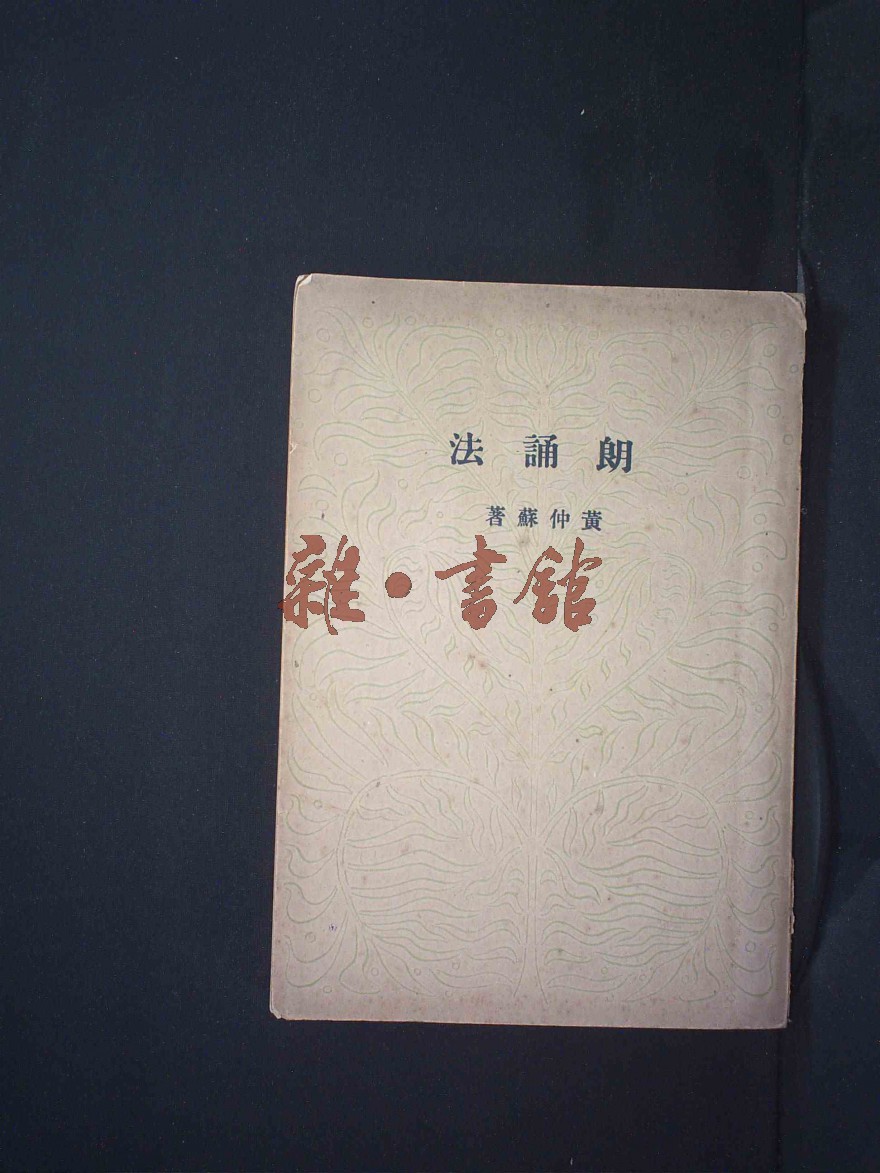 朗誦法
黃仲蘇著
雜·書館